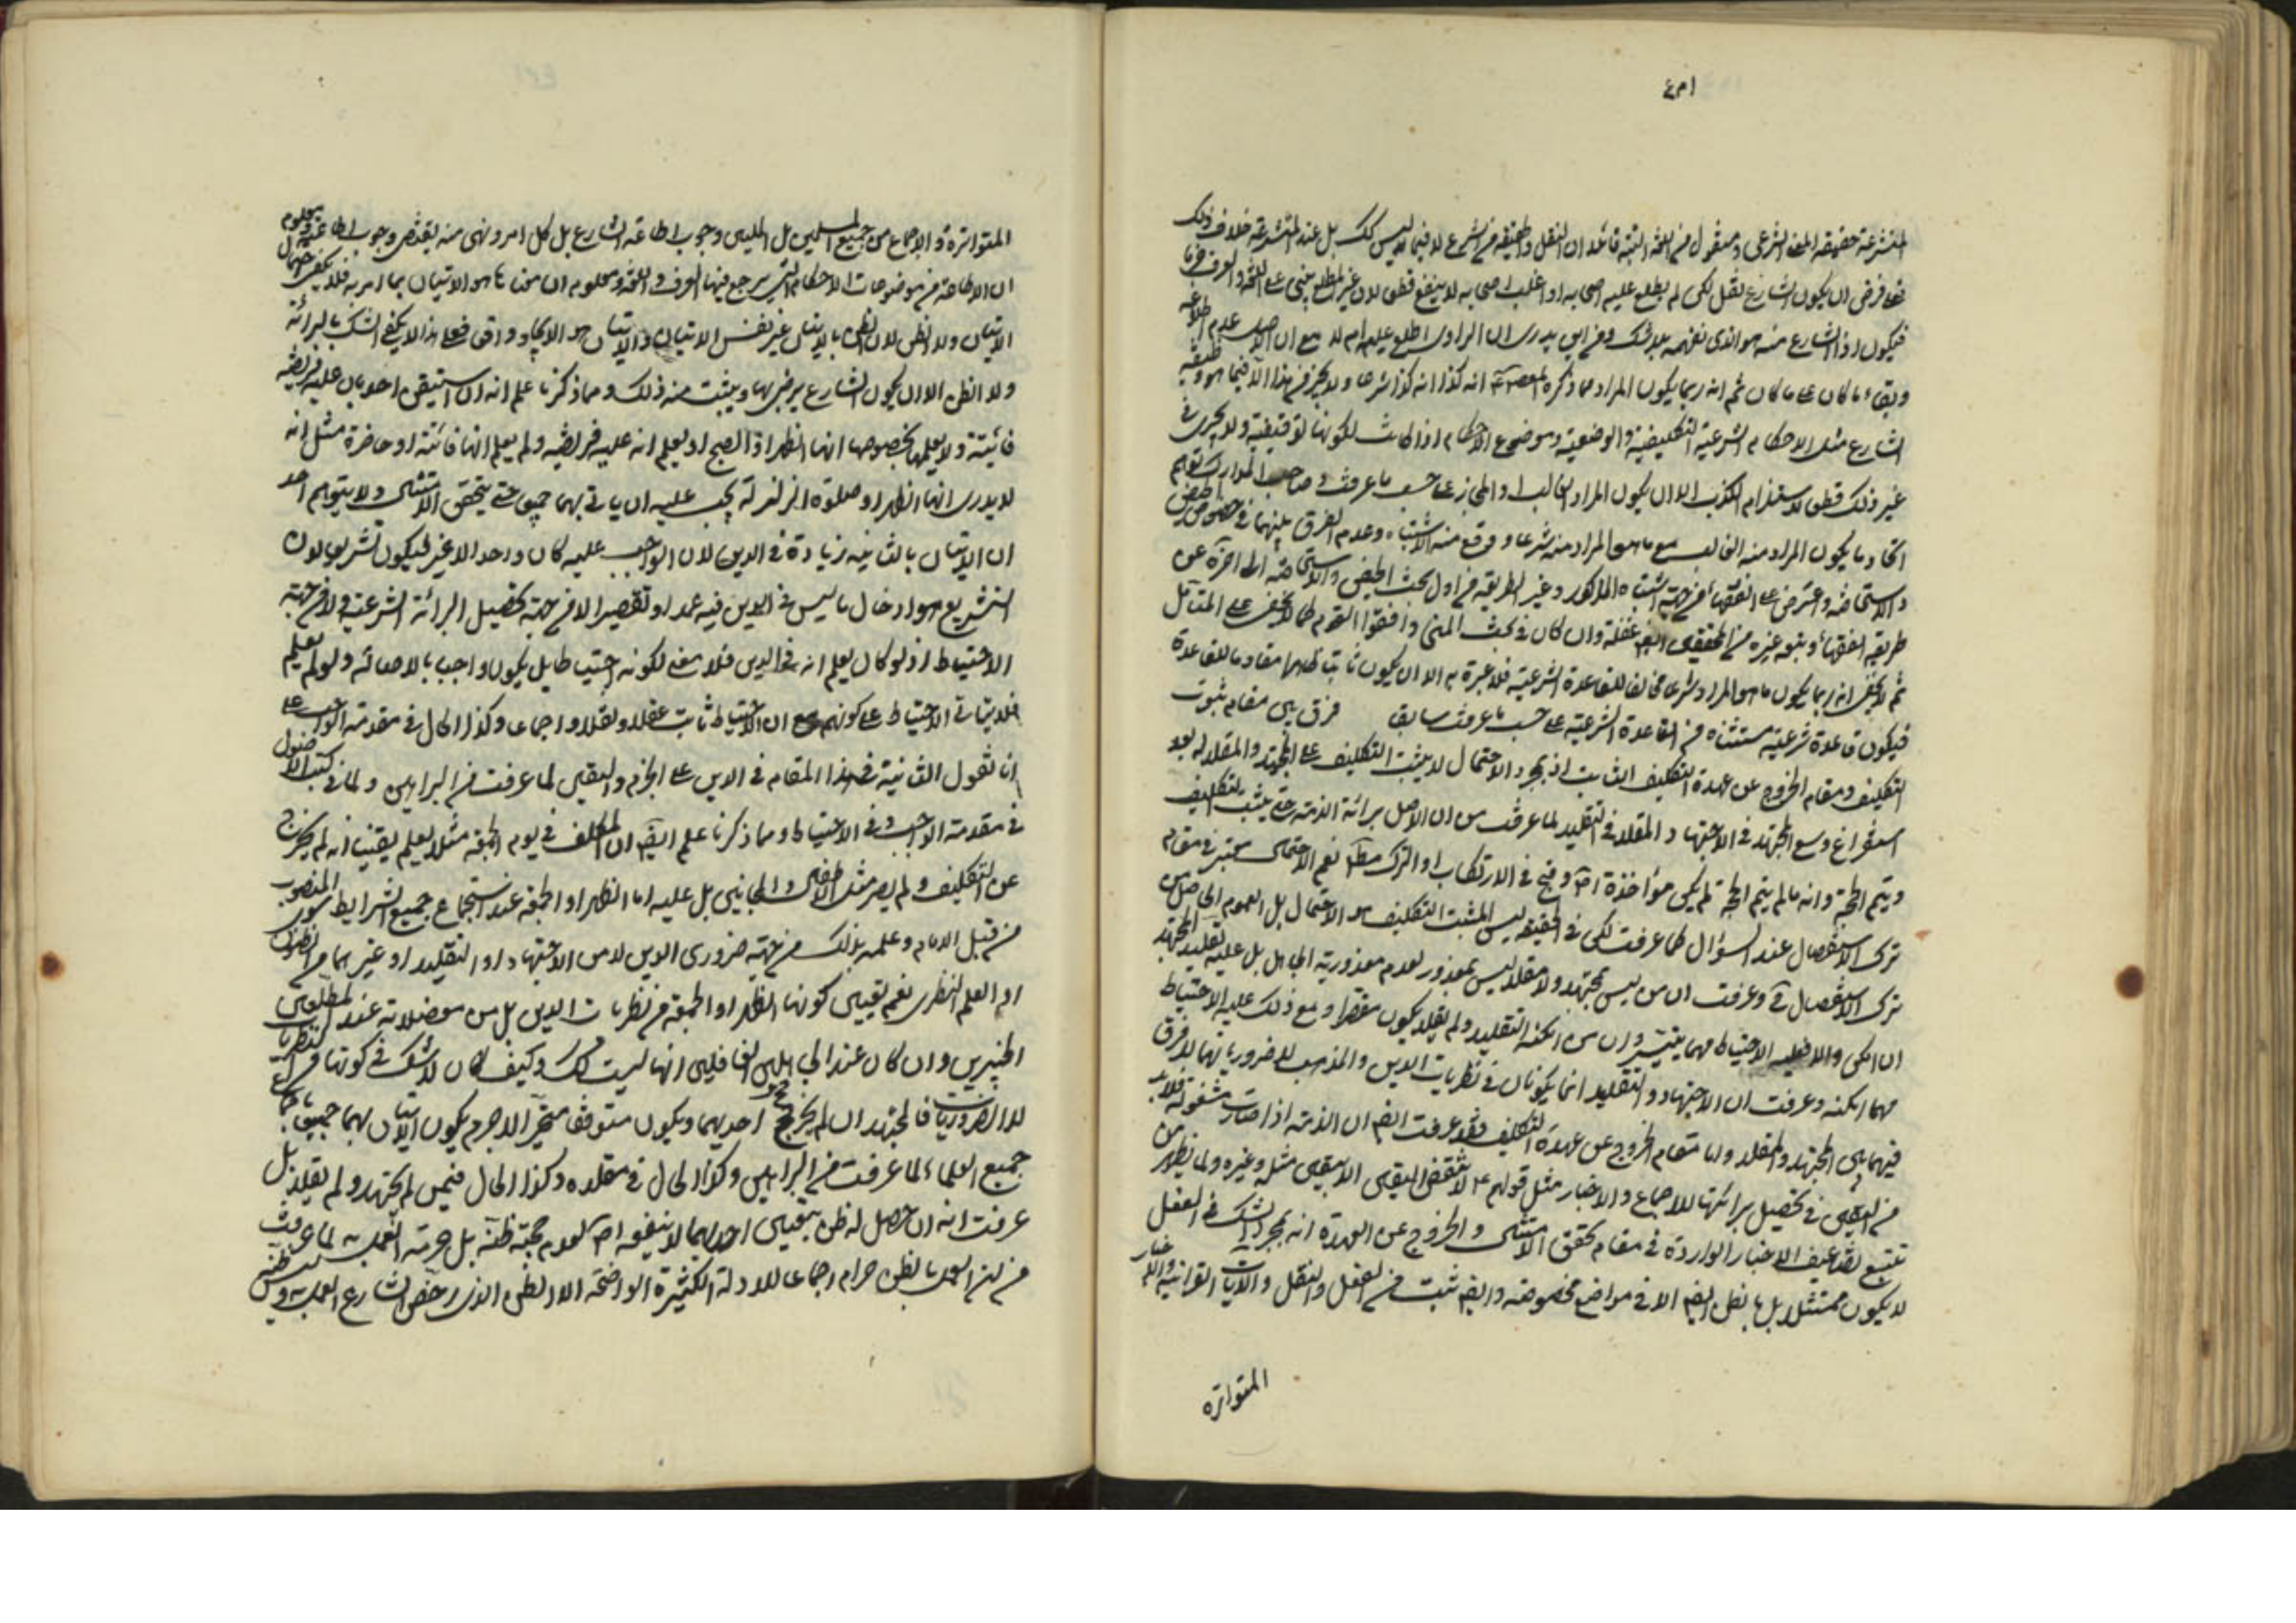 المتشرعة حقيقة المعنى الشرعي ومنقول من اللغة البتة قائلا ان النقل والحقيقة من الشرع لا فيما ليس كك بل عند المتشرعة خلاف ذلك
فعلى فرض ان يكون الشارع نقل لكن لم يطلع عليه اصحابه او اغلب اصحابه لا ينفع قطعا لان غير المطلع يبني على اللغة والعرف
فيكون اذ الشارع منه هو الذي نفهمه بلا شك ومن اين يدرى ان الراوي اطلع عليه ام لا مع ان الاصل عدم اطلاعه
وبقاء ما كان على ما كان ثم انه ربما يكون المراد مما ذكره المعصوم انه كذا انه كذا شرعا ولا يجز في هذا الا فيما هو وظيفة
الشارع مثل الاحكام الشرعية التكليفية والوضعية وموضوع الاحكام اذا كانت لكونها توقيفية ولا يجرى في
غير ذلك قطعا لاستلزام الكذب الا ان يكون المراد الغالب او المجاز على حسب ما عرفت وصاحب المدارك توهم
اتحاد ما يكون المراد منه الغالب مع ما هو المراد منه شرعا ووقع منه الاشتباه وعدم الفرق بينهما في خصوص الحيض
والاستحاضة واعترض على الفقهاء من جهة اشتباه المذكور وغير الطريقة في اول بحث الحيض والاستحاضة الى اخره عن
طريقة الفقهاء وتبعه غيره من المحققين ايضا غفلة وان كان في بحث المنى وافقوا القوم كما لا يخفى على المتأمل
ثم لا يخفى انه ربما يكون ما هو المراد شرعا مخالفا للقاعدة الشرعية فلا عبرة به الا ان يكون ثابتا مقاوما للقاعدة
فيكون قاعدة شرعية مستثناه من القاعدة الشرعية على حسب ما عرفت سابقا فرق بين مقام ثبوت
التكليف ومقام الخروج عن عهدة التكليف الثابت اذ بمجرد الاحتمال لا يثبت التكليف على المجتهد والمقلد له بعد
استفراغ وسع المجتهد في الاجتهاد والمقلد في التقليد لما عرفت من ان الاصل برائة الذمة حتى يثبت التكليف
ويتم الحجة وانه ما لم يتم الحجة لم يكن مؤاخذة اصلا وقبح في الارتكاب او الترك مطلقا نعم الاحتمال معتبر في مقام
ترك الاستفصال عند السؤال كما عرفت لكن في الحقيقة ليس المثبت التكليف هو الاحتمال بل العموم الحاصل من
ترك الاستفصال وعرفت ان من ليس بمجتهد ولا مقلد ليس بمعذور لعدم معذورية الجاهل بل عليه تقليد المجتهد
ان امكن والا فعليه الاحتياط مهما يتيسر وان من امكنه التقليد ولم يقلد يكون مقصرا ومع ذلك عليه الاحتياط
مهما امكنه وعرفت ان الاجتهاد والتقليد انما يكونان في نظريات الدين والمذهب لا ضرورياتهما لا فرق
فيهما بين المجتهد والمقلد واما مقام الخروج عن عهدة التكليف فقد عرفت ايضا ان الذمة اذا صارت مشغولة فلا بد
من اليقين في تحصيل برائتها للاجماع والاخبار مثل قولهم ع لا تنقض اليقين الا بيقين مثله وغيره ولما يظهر من
تتبع تضاعيف الاخبار الواردة في مقام تحقق الامتثال والخروج عن العهدة انه بمجرد الشك في الفعل
لا يكون ممتثلا بل بالظن ايضا الا في مواضع مخصوصة وايضا ثبت من العقل والنقل والايات القرانية والاخبار
المتواتره
المتواترة والاجماع من جميع المسلمين بل المليين وجوب اطاعة الشارع بل كل امر ونهى منه يقتضى وجوب اطاعته ومعلوم
ان الاطاعة من موضوعات الاحكام التي يرجع فيها الى العرف واللغة ومعلوم ان معناها هو الاتيان بما امر به فلا يكفى احتمال
الاتيان ولا الظن لان الظن بالاتيان غير نفس الاتيان والاتيان هو الايجاد واقعا فعلى هذا لا يكفى الشك بالبرائة
ولا الظن الا ان يكون الشارع يرضى بها ويثبت منه ذلك ومما ذكرنا علم انه ان استيقن احد بان عليه فريضة
فائتة ولا يعلمها بخصوصها انها الظهر او الصبح او يعلم انه عليه فريضة ولم يعلم انها فائتة او حاضرة مثل انه
لا يدرى انها الظهر او صلوة الزلزلة يجب عليه ان ياتى بهما جميعا حتى يتحقق الامتثال ولا يتوهم احد
ان الاتيان بالثانية زيادة في الدين لان الواجب عليه كان واحدا لا غير فيكون تشريعا لان
التشريع هو ادخال ما ليس في الدين فيه عمدا او تقصيرا لا من جهة تحصيل البرائة الشرعية ولا من جهة
الاحتياط اذ لو كان يعلم انه في الدين فلا معنى لكونه احتياطا بل يكون واجبا بالاصالة ولو لم يعلم
فلا يتأتى الاحتياط على كونهم مع ان الاحتياط ثابت عقلا ونقلا واجماعا وكذا الحال في مقدمة الواجب على
انا نقول الثانية في هذا المقام في الدين على الجزم واليقين لما عرفت من البراهين ولما في كتب الاصول
في مقدمة الواجب وفي الاحتياط ومما ذكرنا علم ايضا ان المكلف في يوم الجمعة مثلا يعلم يقينا انه لم يخرج
عن التكليف ولم يصر مثل الاطفال والمجانين بل عليه اما الظهر او الجمعة عند استجماع جميع الشرايط سوى المنصوب
من قبل الامام وعلمه بذلك من جهة ضرورى الدين لا من الاجتهاد او التقليد او غيرهما من الظنون
او العلم النظرى نعم تعيين كونها الظهر او الجمعة من نظريات الدين بل من معضلاته عند المطلعين
الخبيرين وان كان عند الجاهلين الغافلين انها ليست كك وكيف كان لا شك في كونها من النظريات
لا الضروريات فالمجتهد ان لم يترجح احديهما ويكون متوقفا متحيرا لا جرم يكون الاتيان بهما جميعا
جميع العلماء لما عرفت من البراهين وكذا الحال في مقلده وكذا الحال فيمن لم يجتهد ولم يقلد بل
عرفت انه ان حصل له ظن بتعيين احديهما لا ينفعه اصلا لعدم حجية ظنه بل حرمة العمل به لما عرفت
من ان العمل بالظن حرام اجماعا للادلة الكثيرة الواضحة الا الظن الذى رخص الشارع العمل به وليس ظنه